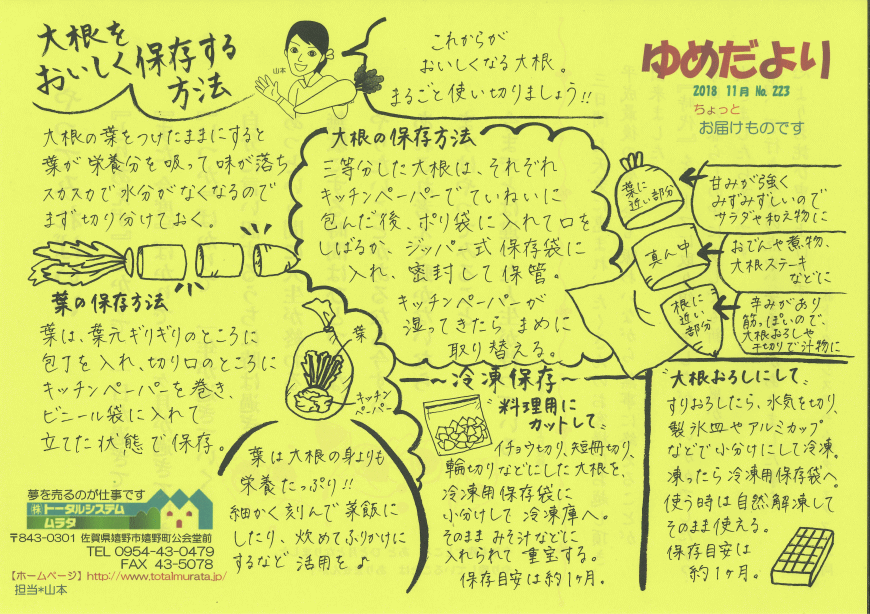 大根を
おいしく保存する
方法
山本
これからが
おいしくなる大根。
まるごと使い切りましょう!!
ゆめだより
2018 11月 No. 223
ちょっと
お届けものです
大根の葉をつけたままにすると
葉が栄養分を吸って味が落ち
スカスカで水分がなくなるので
まず切り分けておく。
大根の保存方法
三等分した大根は、それぞれ
キッチンペーパーでていねいに
包んだ後、ポリ袋に入れて口を
しばるか、ジッパー式保存袋に
入れ、密封して保管。
キッチンペーパーが
湿ってきたらまめに
取り替える。
葉に
近い部分
甘みが強く
みずみずしいので
サラダや和え物に
真ん中
おでんや煮物、
大根ステーキ
などに
根に
近い
部分
辛みがあり
筋っぽいので、
大根おろしや
千切りで汁物に
葉の保存方法
葉は、葉元ギリギリのところに
包丁を入れ、切り口のところに
キッチンペーパーを巻き、
ビニール袋に入れて
立てた状態で保存。
葉
キッチン
ペーパー
葉は大根の身よりも
栄養たっぷり!!
細かく刻んで菜飯に
したり、炒めてふりかけに
するなど活用を♪
~冷凍保存~
"料理用に
カットして"
イチョウ切り、短冊切り、
輪切りなどにした大根を、
冷凍用保存袋に
小分けして冷凍庫へ。
そのままみそ汁などに
入れられて重宝する。
保存目安は約1ヶ月。
"大根おろしにして"
すりおろしたら、水気を切り、
製氷皿やアルミカップ
などで小分けにして冷凍。
凍ったら冷凍用保存袋へ。
使う時は自然解凍して
そのまま使える。
保存目安は
約1ヶ月。
夢を売るのが仕事です
㈱トータルシステム
ムラタ
〒843-0301 佐賀県嬉野市嬉野町公会堂前
TEL 0954-43-0479
FAX 43-5078
【ホームページ】http://www.totalmurata.jp/
担当*山本